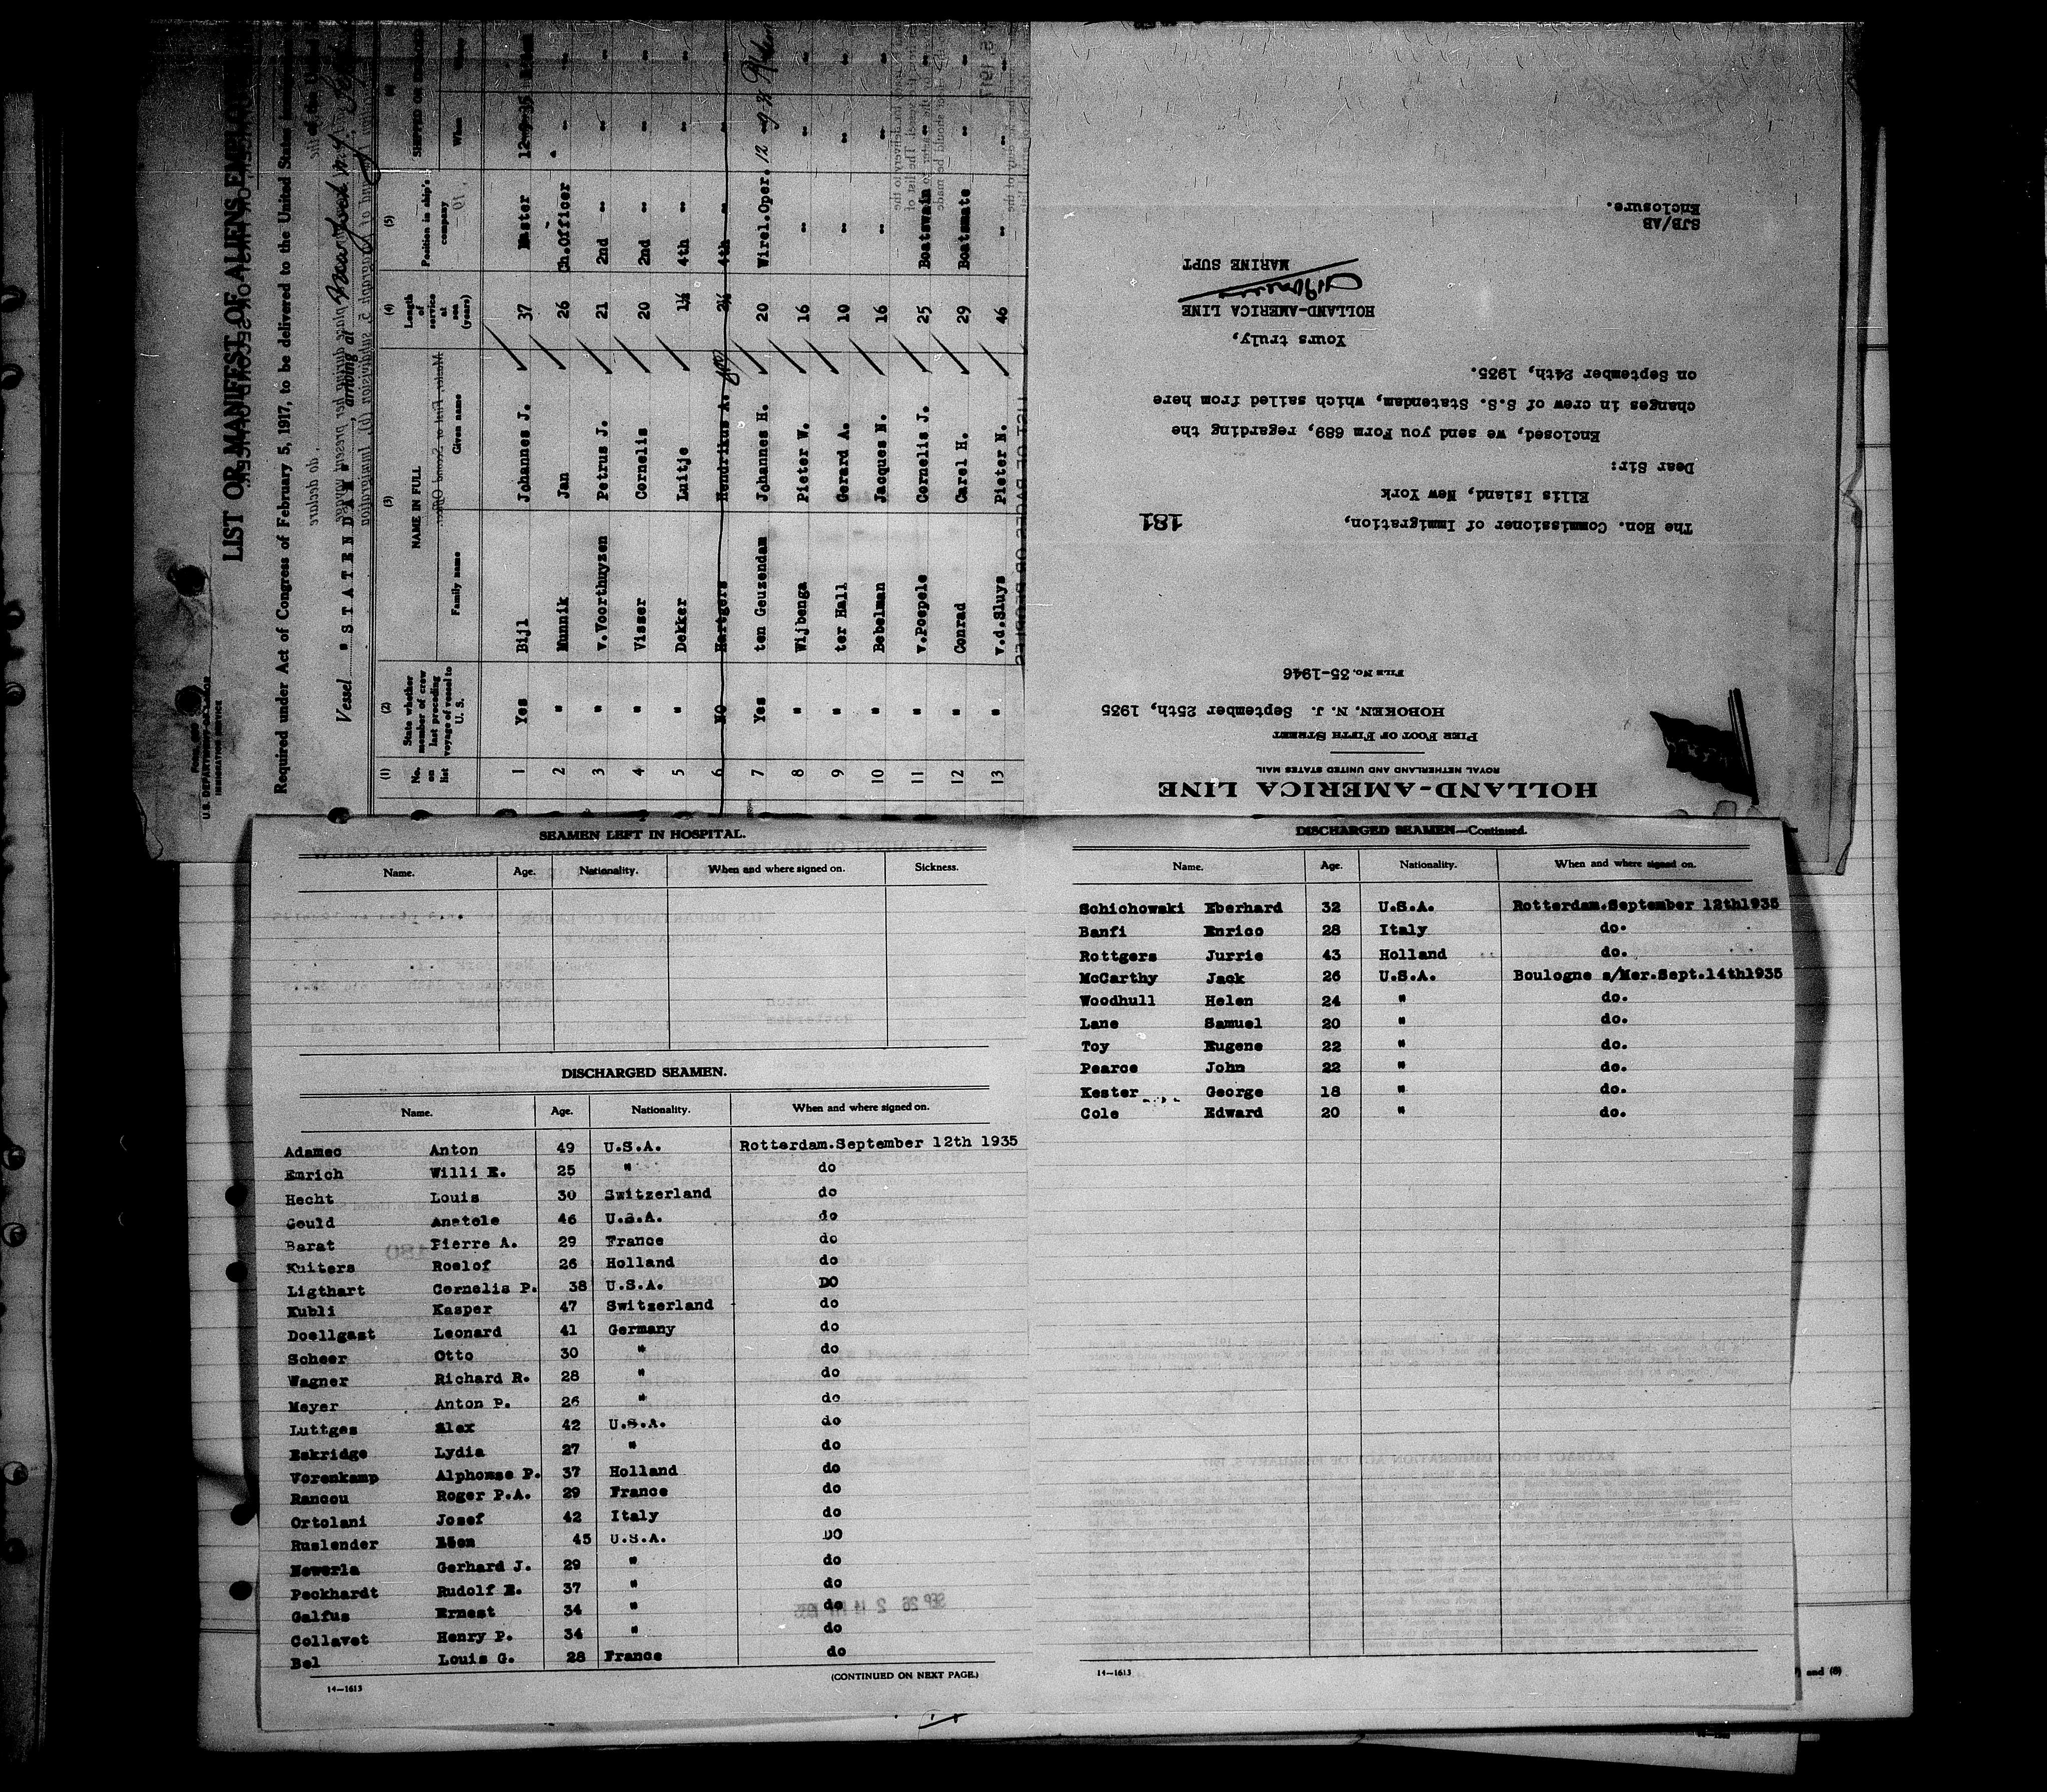 LIST OR MANIFEST OF ALIENS EMPLOYED
Required under Act of Congress of February 5, 1917, to be delivered to the United States
U.S. DEPARTMENT OF LABOR
IMMIGRATION SERVICE
Vessel "STATENDAM", arriving at
(1) (2) (3) (4) (5)
No. on list State whether member of crew last preceding voyage of vessel to U. S. NAME IN FULL Length of service at sea (years) Position in ship's company SHIPPED OR ENGAGED
Family name Given name When
1 Yes Bijl Johannes J. 37 Master 12-9-35
2 " Munnik Jan 26 Ch.Officer "
3 " v.Voorthuyzen Petrus J. 21 2nd " "
4 " Visser Cornelis 20 2nd " "
5 " Dekker Luitje 1½ 4th " "
6 NO Hartgers Hendrikus A. 2½ 4th "
7 Yes ten Geuzendam Johannes H. 20 Wirel.Oper. 12
8 " Wijbenga Pieter W. 16 " "
9 " ter Hall Gerard A. 10 " "
10 " Bebelman Jacques N. 16 " "
11 " v.Poepele Cornelis J. 25 Boatswain "
12 " Conrad Carel H. 29 Boatsmate "
13 " v.d.Sluys Pieter N. 46 " "
HOLLAND-AMERICA LINE
ROYAL NETHERLAND AND UNITED STATES MAIL
PIER FOOT OF FIFTH STREET
HOBOKEN, N. J. September 25th, 1935
FILE No. 35-1946
181
The Hon. Commissioner of Immigration,
Ellis Island, New York
Dear Sir:
Enclosed, we send you Form 689, regarding the
changes in crew of S.S. Statendam, which sailed from here
on September 24th, 1935.
Yours truly,
HOLLAND-AMERICA LINE
MARINE SUPT
SJB/AB
Enclosure.
SEAMEN LEFT IN HOSPITAL.
Name. Age. Nationality. When and where signed on. Sickness.
DISCHARGED SEAMEN.
Name. Age. Nationality. When and where signed on.
Adamec Anton 49 U.S.A. Rotterdam.September 12th 1935
Emrich Willi E. 25 " do
Hecht Louis 30 Switzerland do
Gould Anatole 46 U.S.A. do
Barat Pierre A. 29 France do
Kuiters Roelof 26 Holland do
Ligthart Cornelis P. 38 U.S.A. DO
Kubli Kasper 47 Switzerland do
Doellgast Leonard 41 Germany do
Scheer Otto 30 " do
Wagner Richard R. 28 " do
Meyer Anton P. 26 " do
Luttges Alex 42 U.S.A. do
Eskridge Lydia 27 " do
Vorenkamp Alphonse P. 37 Holland do
Rancou Roger P.A. 29 France do
Ortolani Josef 42 Italy do
Ruslender 45 U.S.A. DO
Newerla Gerhard J. 29 " do
Peckhardt Rudolf E. 37 " do
Galfus Ernest 34 " do
Collavet Henry P. 34 " do
Bel Louis G. 28 France do
(CONTINUED ON NEXT PAGE.)
14—1613
DISCHARGED SEAMEN—Continued.
Name. Age. Nationality. When and where signed on.
Schichowski Eberhard 32 U.S.A. Rotterdam.September 12th1935
Banfi Enrico 28 Italy do.
Rottgers Jurrie 43 Holland do.
McCarthy Jack 26 U.S.A. Boulogne s/Mer.Sept.14th1935
Woodhull Helen 24 " do.
Lane Samuel 20 " do.
Toy Eugene 22 " do.
Pearce John 22 " do.
Kester George 18 " do.
Cole Edward 20 " do.
14—1613
and (8)